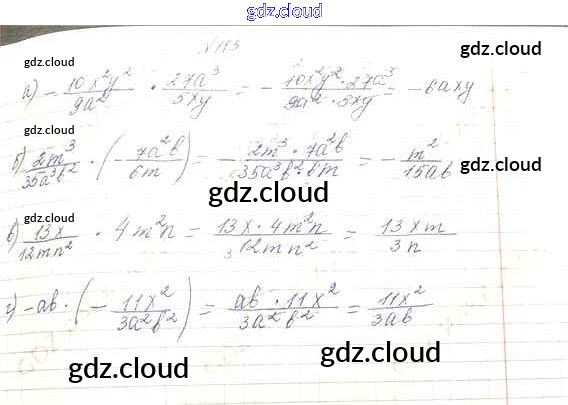 gdz.cloud
№113
gdz.cloud gdz.cloud
а) - 10x²y²/9a² · 27a³/5xy = - 10x²y²·27a³/9a²·5xy = -6axy
gdz.cloud
б) 2m³/35a³b² · (- 7a²b/6m) = - 2m³·7a²b/35a³b²·6m = - m²/15ab
gdz.cloud gdz.cloud
gdz.cloud
в) 13x/12mn² · 4m²n = 13x·4m²n/12mn² = 13xm/3n
3
gdz.cloud gdz.cloud
г) -ab · (- 11x²/3a²b²) = ab·11x²/3a²b² = 11x²/3ab
gdz.cloud gdz.cloud